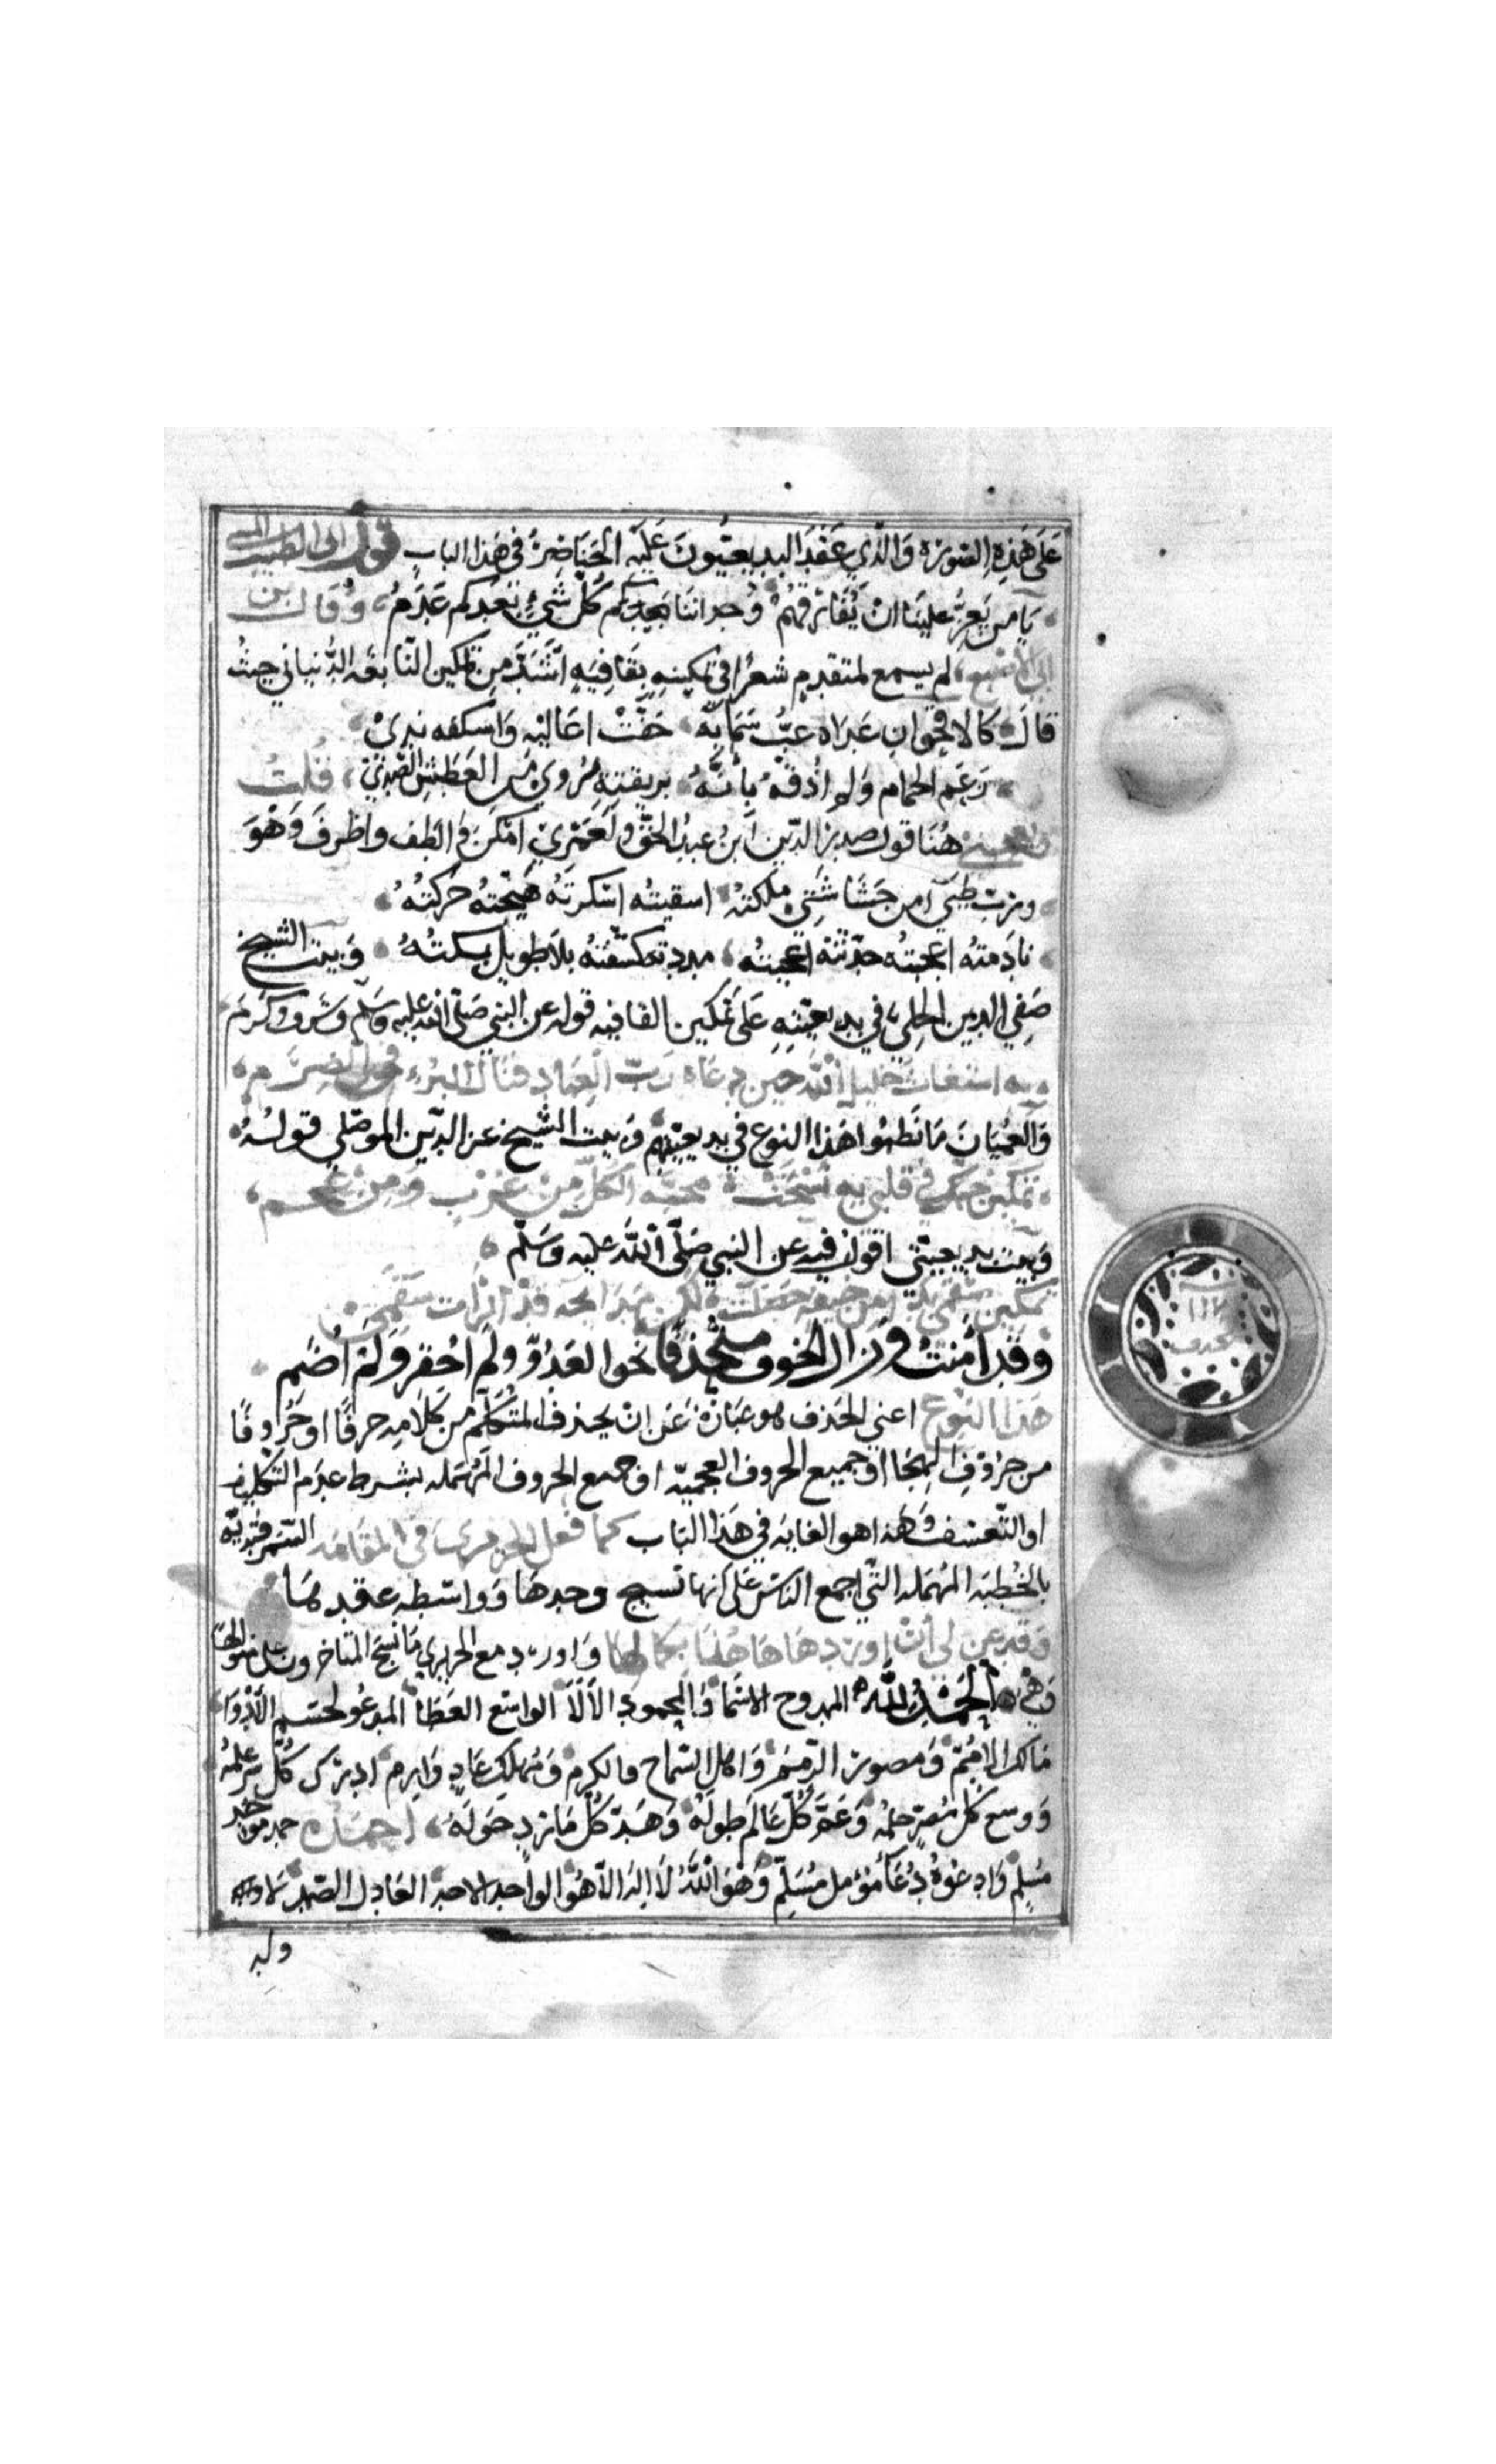 على هذه الصورة والذي عقد البديعيون عليه الخناصر في هذا الباب قول ابي الطيب
يا من يعز علينا ان نفارقهم وجداننا كل شيء بعدكم عدم وقال بن
ابي الاصبع لم يسمع لمتقدم شعرا في تمكينه بقافيه اشد من تمكين النابغه الذبياني حيث
قال كالاقحوان غداه غب سمايه جفت اعاليه واسفله ندي
زعم الحمام ولم اذقه بأنه بريقته يروى من العطش الصدي قلت
هنا قول صدر الدين ابن عبد الحق ولعمري امكن والطف واظرف وهو
اسقيته اسكرته هيجته حركته
نادمته اعجبته حدثته وبيت الشيخ
صفي الدين الحلي في بديعيته على تمكين القافيه قوله عن النبي صلى الله عليه وسلم وشرف وكرم
به استغاث خليل الله حين دعاه رب العباد فنال البرد في الضرم
والعميان ما نظموا هذا النوع في بديعيتهم وبيت الشيخ عز الدين الموصلي قوله
تمكين حبك في قلبي به نسخت محبه الكل من عرب ومن عجم
وبيت بديعيتي اقول فيه عن النبي صلى الله عليه وسلم
تمكين سقمي بدا من خيفه حصلت لكن مدايحه قد ابرات سقمي
وقد أمنت وزال الخوف منحذفا نحو العدو ولم احقر ولم اضم
هذا النوع اعني الحذف هو عبارة عن ان يحذف المتكلم من كلامه حرفا او حروفا
من حروف الهجا او جميع الحروف المعجميه او جميع الحروف المهمله بشرط عدم التكليف
او التعسف وهذا هو الغايه في هذا الباب كما فعل الحريري في المقامه السمرقنديه
بالخطبه المهمله التي اجمع الناس على انها نسيج وحدها وواسطه عقدها
وقد عن لي أن اوردها هاهنا بكمالها واورد مع الحريري ما نسج المتاخرون على منوالها
وهي الحمد لله الممدوح الاسما والمحمود الآلا الواسع العطا المدعو لحسم اللاوا
مالك الامم ومصور الرمم واهل السماح والكرم ومهلك عاد وارم ادرك كل سر علمه
ووسع كل مصر حلمه وعم كل عالم طوله وهد كل مارد حوله احمده حمد موحد
مسلم وادعوه دعا مؤمل مسلم وهو الله لا اله الا هو الواحد الاحد العادل الصمد لا ولد